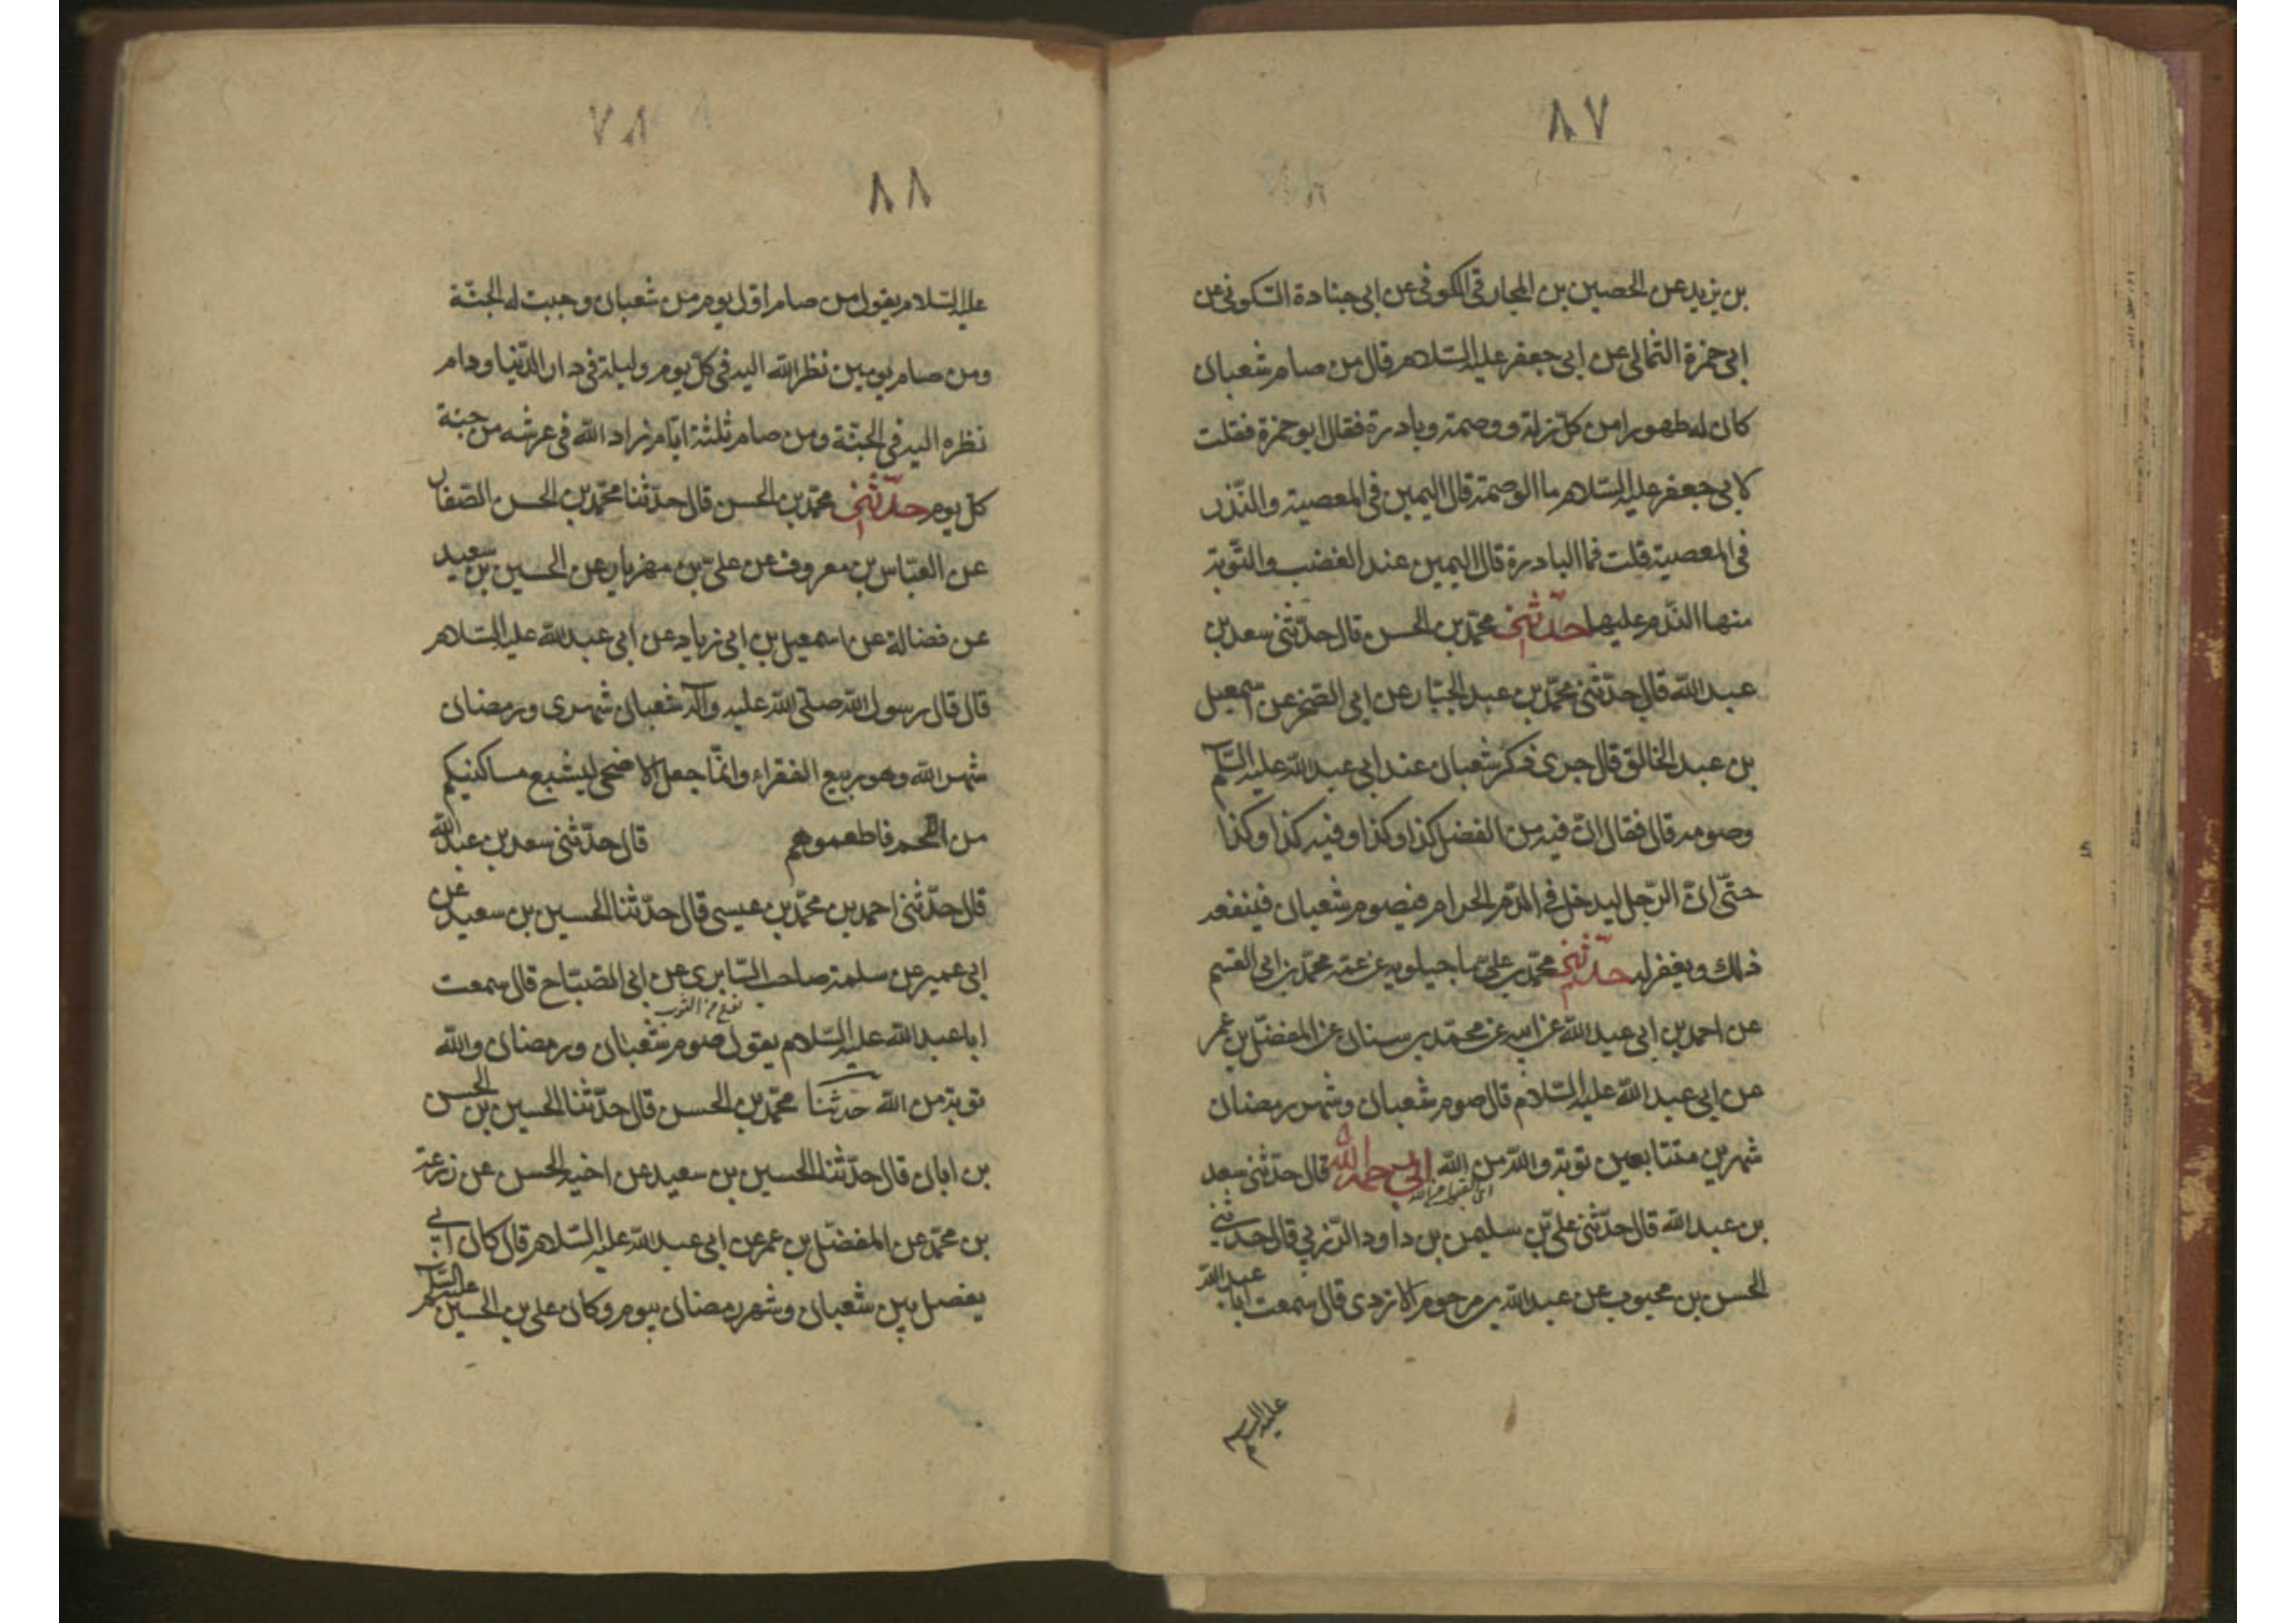 ٨٧
بن يزيد عن الحصين بن المخارق الكوفى عن ابى جنادة السّكونى عن
ابى حمزة الثمالى عن ابى جعفر عليه السّلام قال من صام شعبان
كان له طهورا من كلّ زلة ووصمة وبادرة فقال ابو حمزة فقلت
لابى جعفر عليه السّلام ما الوصمة قال اليمين فى المعصية والنّذر
فى المعصية قلت فما البادرة قال اليمين عند الغضب والتّوبة
منها النّدم عليها حدّثنى محمّد بن الحسن قال حدّثنى سعد بن
عبد الله قال حدّثنى محمّد بن عبد الجبّار عن ابى الصّخر عن اسمعيل
بن عبد الخالق قال جرى ذكر شعبان عند ابى عبد الله عليه السّلم
وصومه قال فقال انّ فيه من الفضل كذا وكذا وفيه كذا وكذا
حتّى انّ الرّجل ليدخل فى الدّم الحرام فيصوم شعبان فينفعه
ذلك ويغفر له حدّثنى محمّد بن علىّ ماجيلويه عن عمّه محمّد بن ابى القسم
عن احمد بن ابى عبد الله عن ابيه عن محمّد بن سنان عن المفضّل بن عمر
عن ابى عبد الله عليه السّلام قال صوم شعبان وشهر رمضان
شهرين متتابعين توبة والله من الله ابى رحمه الله قال حدّثنى سعد
اى القبول من الله
بن عبد الله قال حدّثنى علىّ بن سليمن بن داود الرّزبي قال حدثنى
الحسن بن محبوب عن عبد الله بن مرحوم الازدى قال سمعت ابا عبد الله
عليه السلم
٧٨
٨٨
عليه السّلام يقول من صام اوّل يوم من شعبان وجبت له الجنّة
ومن صام يومين نظر الله اليه فى كلّ يوم وليلة فى دار الدّنيا ودام
نظره اليه فى الجنّة ومن صام ثلثة ايّام زاد الله فى عرشه من جنة
كلّ يوم حدّثنى محمّد بن الحسن قال حدّثنا محمّد بن الحسن الصّفار
عن العبّاس بن معروف عن علىّ بن مهزيار عن الحسين بن سعيد
عن فضالة عن اسمعيل بن ابى زياد عن ابى عبد الله عليه السّلام
قال قال رسول الله صلّى الله عليه وآله شعبان شهرى ورمضان
شهر الله وهو ربيع الفقراء وانّما جعل الاضحى ليشبع مساكنيكم
من اللّحم فاطعموهم قال حدّثنى سعد بن عبد الله
قال حدّثنى احمد بن محمّد بن عيسى قال حدّثنا الحسين بن سعيد عن
ابى عمير عن سلمة صاحب السّابرى عن ابى الصّبّاح قال سمعت
ابا عبد الله عليه السّلام يقول صوم شعبان ورمضان والله
توبة من الله حدثنا محمّد بن الحسن قال حدّثنا الحسين بن الحسن
بن ابان قال حدّثنا الحسين بن سعيد عن اخيه الحسن عن زرعة
بن محمّد عن المفضّل بن عمر عن ابى عبد الله عليه السّلام قال كان ابى
يفصل بين شعبان وشهر رمضان بيوم وكان على بن الحسين عليه السلم